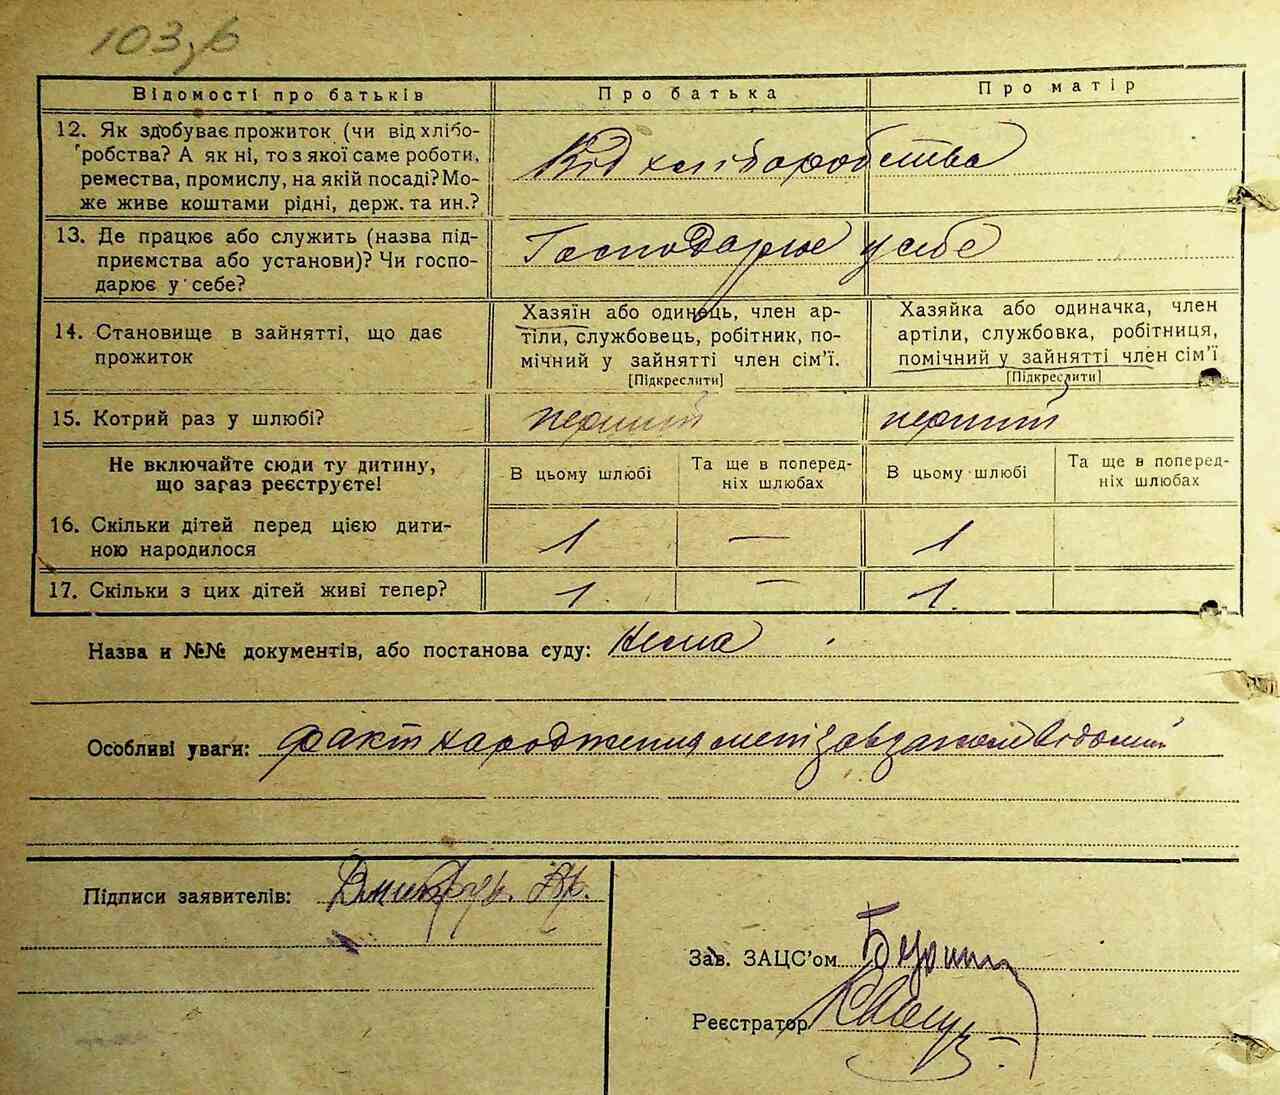 103,б
Відомості про батьків
Про батька
Про матір
12. Як здобуває прожиток (чи від хлібо-
робства? А як ні, то з якої саме роботи,
ремества, промислу, на якій посаді? Мо-
же живе коштами рідні, держ. та ин.?
Від хліборобства
13. Де працює або служить (назва під-
приємства або установи)? Чи госпо-
дарює у себе?
Господарює у себе
14. Становище в зайнятті, що дає
прожиток
Хазяїн або одинець, член ар-
тіли, службовець, робітник, по-
мічний у зайнятті член сім’ї.
[Підкреслити]
Хазяйка або одиначка, член
артіли, службовка, робітниця,
помічний у зайнятті член сім’ї
[Підкреслити]
15. Котрий раз у шлюбі?
перший
перший
Не включайте сюди ту дитину,
що зараз реєструєте!
В цьому шлюбі
Та ще в поперед-
ніх шлюбах
В цьому шлюбі
Та ще в поперед-
ніх шлюбах
16. Скільки дітей перед цією дити-
ною народилося
1
—
1
17. Скільки з цих дітей живі тепер?
1.
—
1.
Назва и №№ документів, або постанова суду: Нема
Особливі уваги: факт народження мені завзагсом відомий
Підписи заявителів:
Зав. ЗАЦС’ом
Реєстратор